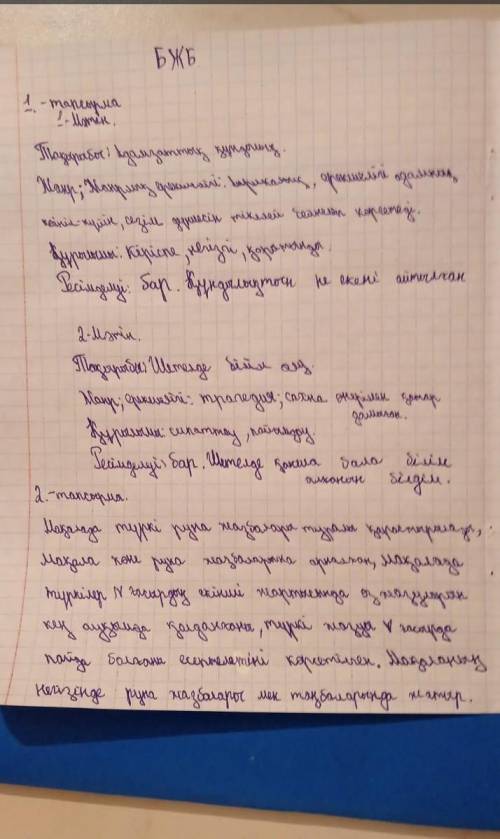 БЖБ
1.-тапсырма
1-Мәтін.
Тақырабы: Адамзаттық құндылық.
Жанр; Жанрлық ерекшелігі: Лирикалық, ерекшелігі адамның
көңіл-күйін, сезім дүниесін тікелей бейнелеп көрсетеді.
Құрылымы: Кіріспе, негізгі, қорытынды.
Ресімделуі: бар. Құндылықтың не екені айтылған
2-Мәтін.
Тақырыбы: Шетелде білім алу.
Жанр; ерекшелігі: трагедия; сахна өнерімен қатар
дамыған.
Құрылымы: сипаттау, пайымдау.
Ресімделуі: бар. Шетелде қанша бала білім
алғанын білдім.
2.-тапсырма.
Мақалада түркі руна жазбалары туралы қарастырылады,
Мақала көне руна жазбаларына арналған, мақалада
түркілер V ғасырдың екінші жартысында өз жазуларын
кең ауқымда қолданғаны, түркі жазуы V ғасырда
пайда болғаны есептелетіні көрсетілген. Мақаланың
негізінде руна жазбалары мен таңбаларында жатыр.